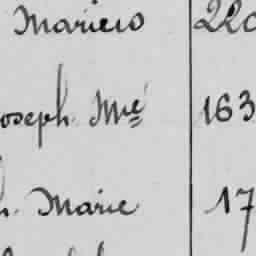 Marieio 220
oseph. Mie 163
h. Marie 17